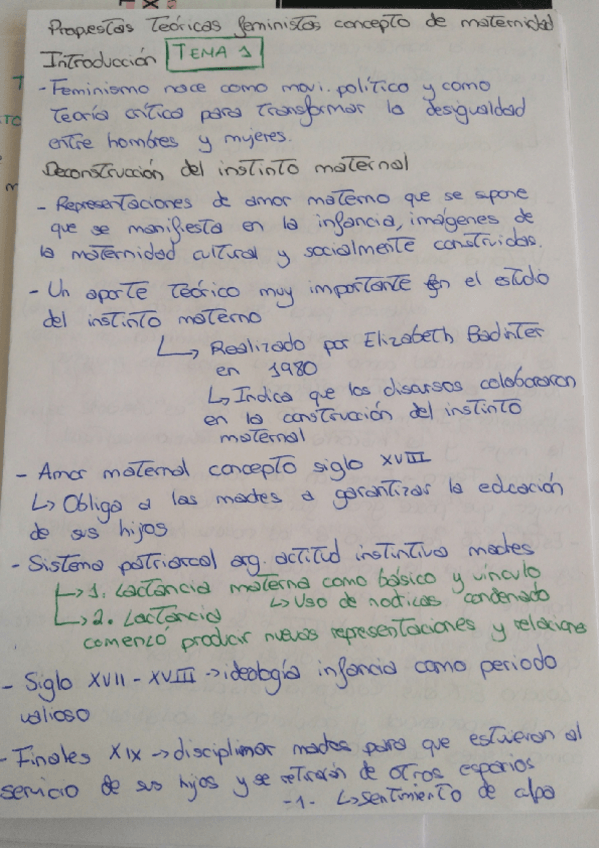 Propuestas Teóricas feministas concepto de maternidad
Introducción TEMA 1
- Feminismo nace como movi. político y como
teoría crítica para transformar la desigualdad
entre hombres y mujeres.
Deconstrucción del instinto maternal
- Representaciones de amor materno que se supone
que se manifiesta en la infancia, imágenes de
la maternidad cultural y socialmente construidas.
- Un aporte teórico muy importante en el estudio
del instinto materno
↳ Realizado por Elizabeth Badinter
en 1980
↳ Indica que los discursos colaboraron
en la construcción del instinto
maternal
- Amor maternal concepto siglo XVIII
↳ Obliga a las madres a garantizar la educación
de sus hijos
- Sistema patriarcal org. actitud instintiva madres
↳ 1. Lactancia materna como básico y vínculo
↳ Uso de nodrizas condenado
↳ 2. Lactancia
comenzó producir nuevas representaciones y relaciones
- Siglo XVII - XVIII → ideología infancia como periodo
valioso
- Finales XIX → disciplinar madres para que estuvieran al
servicio de sus hijos y se retiraran de otros espacios
-1- ↳ sentimiento de culpa